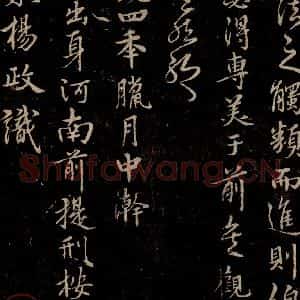 法之觸類而進則
得專美于前矣觀
四季臘月中澣
出身河南前提刑按
楊政識
Shufawang.CN